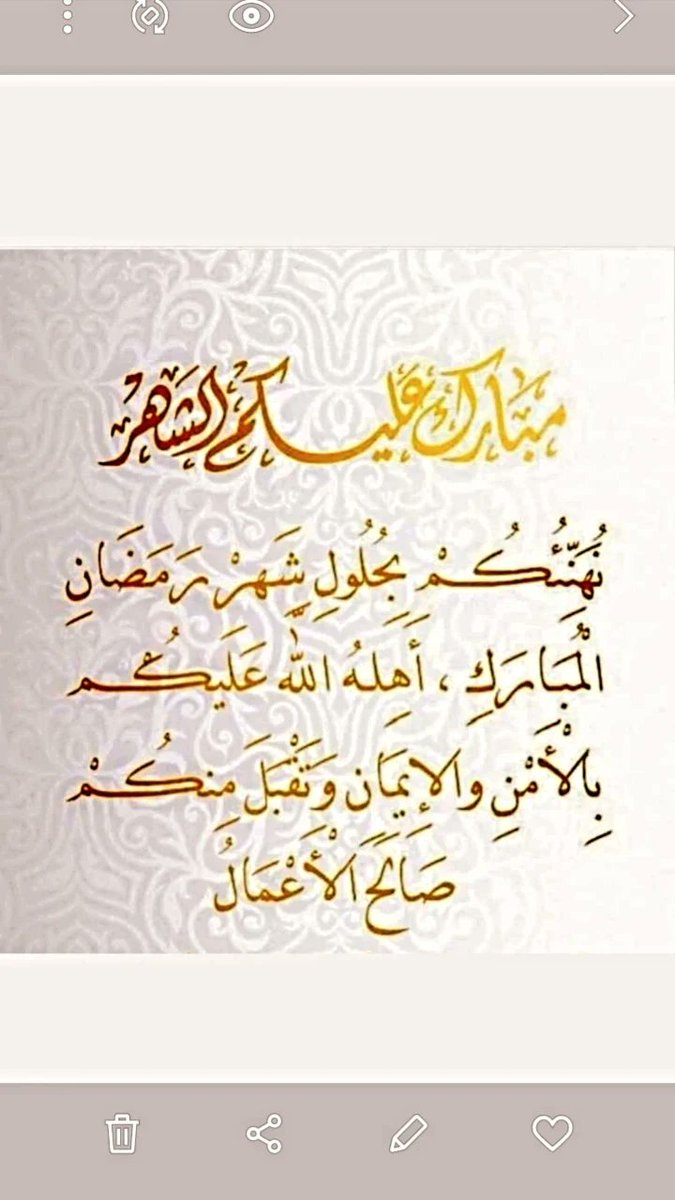 مبارك عليكم الشهر
نُهَنِّئُكُمْ بِحُلُولِ شَهرْ رَمَضَانِ
الْمُبَارَكِ ، أَهِلهُ اللّٰه عَلَيكُم
بِالْأَمْنِ والإِيمَان وَتَقْبَلَ مِنكُمْ
صَالِحَ الْأَعْمَالُ